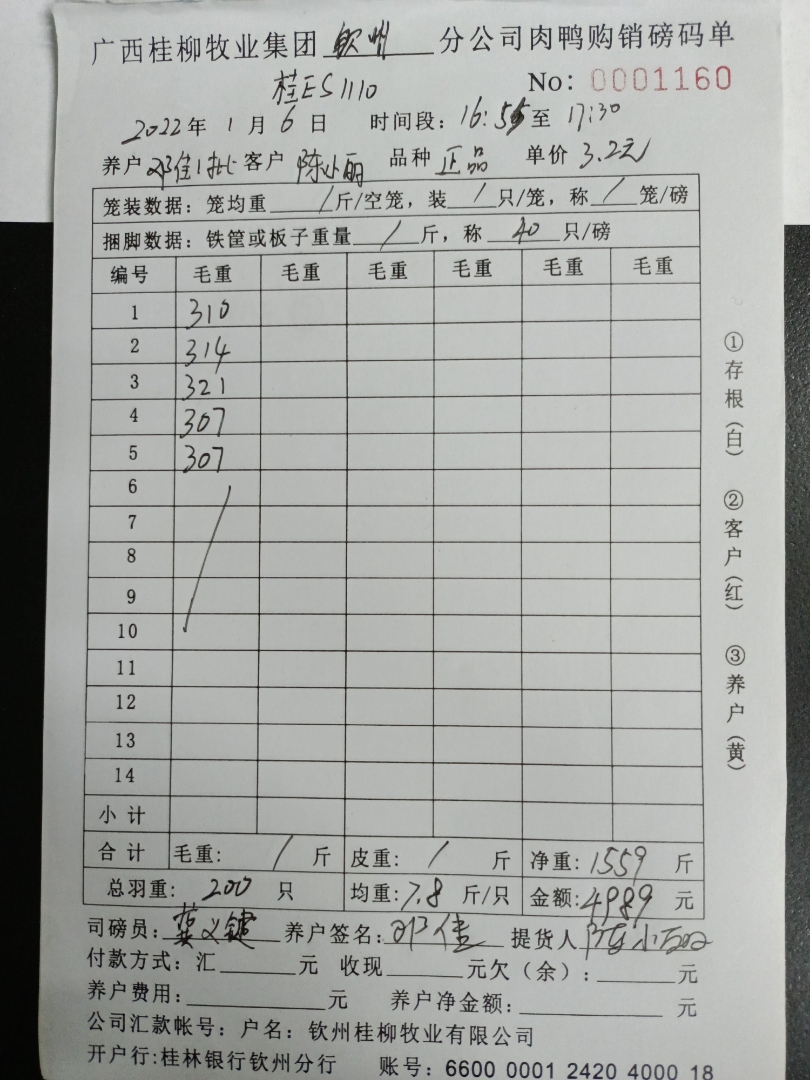 广西桂柳牧业集团 钦州 分公司肉鸭购销磅码单
桂ES1110 No：0001160
2022年 1月 6日 时间段：16:55至 17:30
养户 邓佳1批 客户 陈小丽 品种 正品 单价 3.2元
笼装数据：笼均重 / 斤/空笼，装 / 只/笼，称 / 笼/磅
捆脚数据：铁筐或板子重量 / 斤，称 40 只/磅
编号 毛重 毛重 毛重 毛重 毛重 毛重
1 310
2 314
3 321
4 307
5 307
6
7
8
9
10
11
12
13
14
小计
合计 毛重： / 斤 皮重： / 斤 净重：1559 斤
总羽重： 200 只 均重：7.8 斤/只 金额：4989 元
司磅员：龚义键 养户签名：邓佳 提货人 陈小丽
付款方式：汇 元 收现 元欠（余）： 元
养户费用： 元 养户净金额： 元
公司汇款帐号：户名：钦州桂柳牧业有限公司
开户行:桂林银行钦州分行 账号：6600 0001 2420 4000 18
①存根（白） ②客户（红） ③养户（黄）